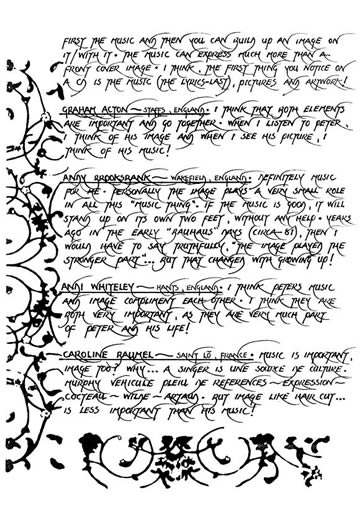 FIRST THE MUSIC AND THEN YOU CAN BUILD UP AN IMAGE ON
IT/WITH IT. THE MUSIC CAN EXPRESS MUCH MORE THAN A
FRONT COVER IMAGE. I THINK, THE FIRST THING YOU NOTICE ON
A CD IS THE MUSIC (THE LYRICS-LAST), PICTURES AND ARTWORK!
GRAHAM ACTON ~ STAFFS, ENGLAND. I THINK THAT BOTH ELEMENTS
ARE IMPORTANT AND GO TOGETHER. WHEN I LISTEN TO PETER,
I THINK OF HIS IMAGE AND WHEN I SEE HIS PICTURE, I
THINK OF HIS MUSIC!
ANDY BROOKSBANK ~ WAKEFIELD, ENGLAND. DEFINITELY MUSIC
FOR ME. PERSONALLY THE IMAGE PLAYS A VERY SMALL ROLE
IN ALL THIS "MUSIC THING". IF THE MUSIC IS GOOD, IT WILL
STAND UP ON ITS OWN TWO FEET, WITHOUT ANY HELP. YEARS
AGO IN THE EARLY "BAUHAUS" DAYS (CIRCA-81), THEN I
WOULD HAVE TO SAY TRUTHFULLY, "THE IMAGE PLAYED THE
STRONGER PART"... BUT THAT CHANGED WITH GROWING UP!
ANNI WHITELEY ~ HANTS, ENGLAND. I THINK PETERS MUSIC
AND IMAGE COMPLIMENT EACH OTHER. I THINK THEY ARE
BOTH VERY IMPORTANT, AS THEY ARE VERY MUCH PART
OF PETER AND HIS LIFE!
CAROLINE BAUMEL ~ SAINT LÔ, FRANCE. MUSIC IS IMPORTANT,
IMAGE TOO? WHY... A SINGER IS UNE SOURCE DE CULTURE.
MURPHY VEHICULE PLEIN DE REFERENCES ~ EXPRESSION ~
COCTEAU ~ WILDE ~ ARTAUD. BUT IMAGE LIKE HAIR CUT...
IS LESS IMPORTANT THAN HIS MUSIC!